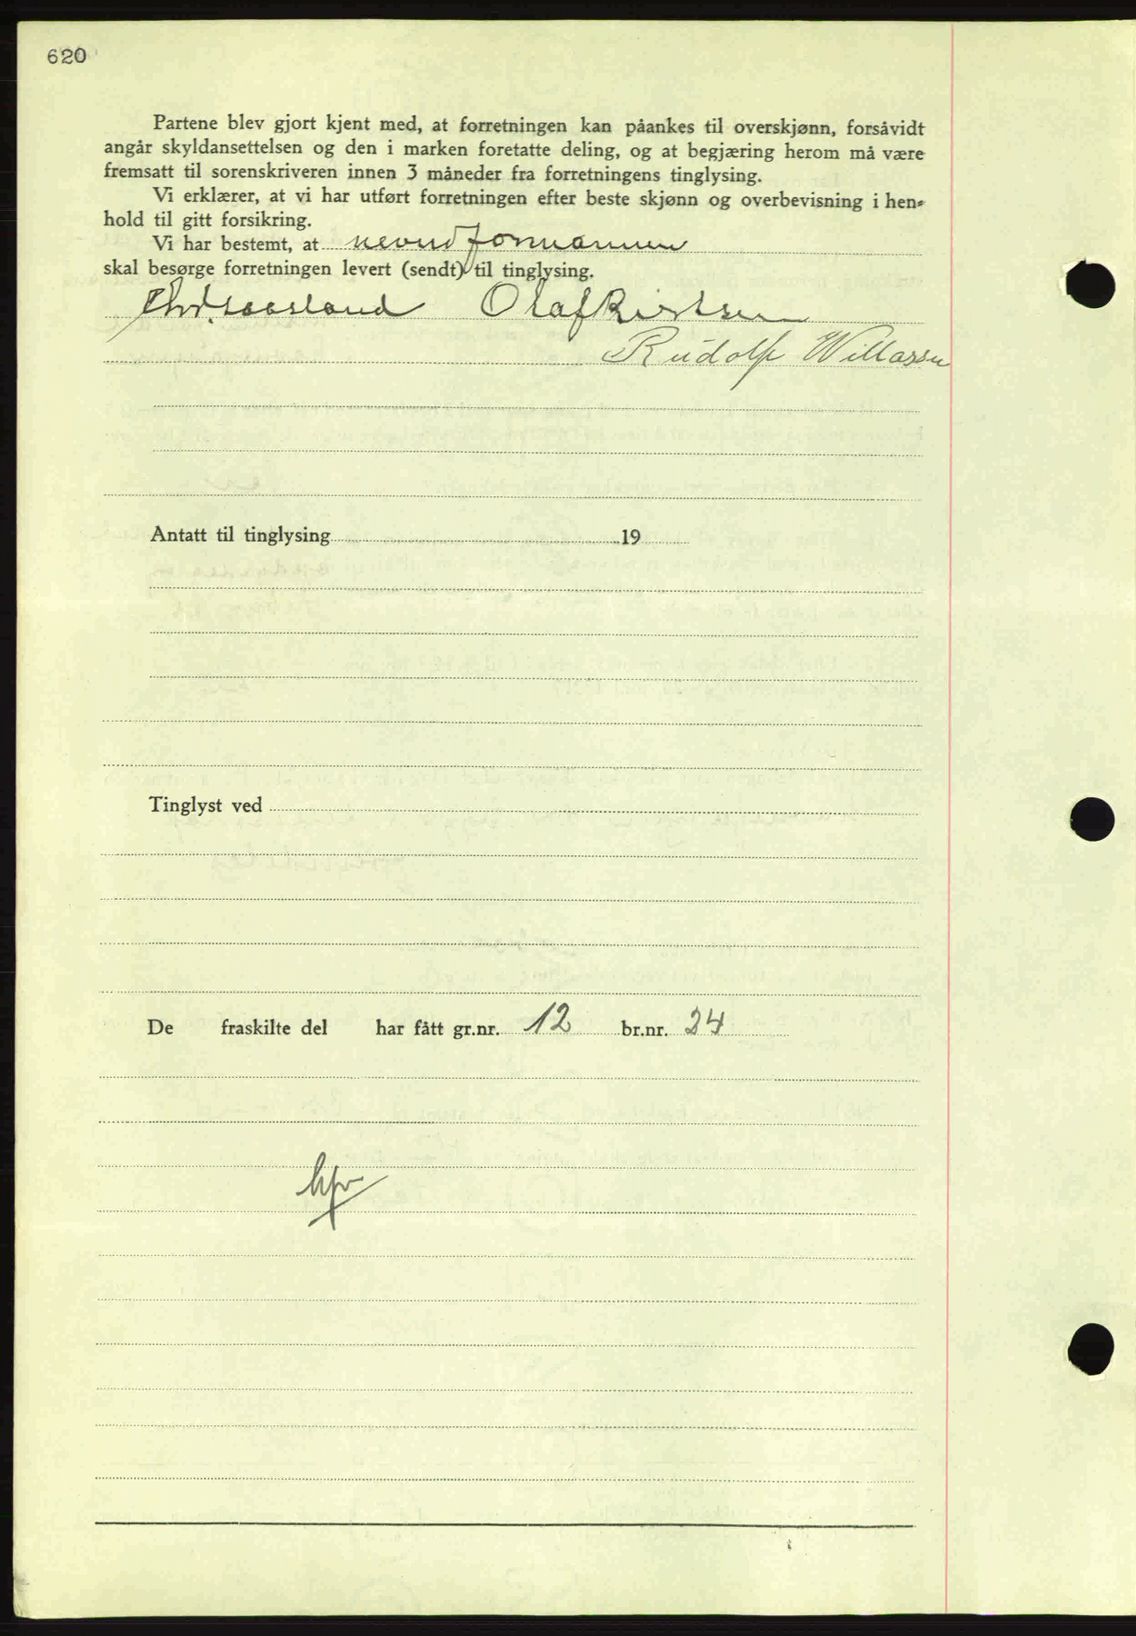 620
Partene blev gjort kjent med, at forretningen kan påankes til overskjønn, forsåvidt
angår skyldansettelsen og den i marken foretatte deling, og at begjæring herom må være
fremsatt til sorenskriveren innen 3 måneder fra forretningens tinglysing.
Vi erklærer, at vi har utført forretningen efter beste skjønn og overbevisning i hen-
hold til gitt forsikring.
Vi har bestemt, at nevndformannen
skal besørge forretningen levert (sendt) til tinglysing.
Olaf
Rudolf Willassen
Antatt til tinglysing 19
Tinglyst ved
De fraskilte del har fått gr.nr. 12 br.nr. 24